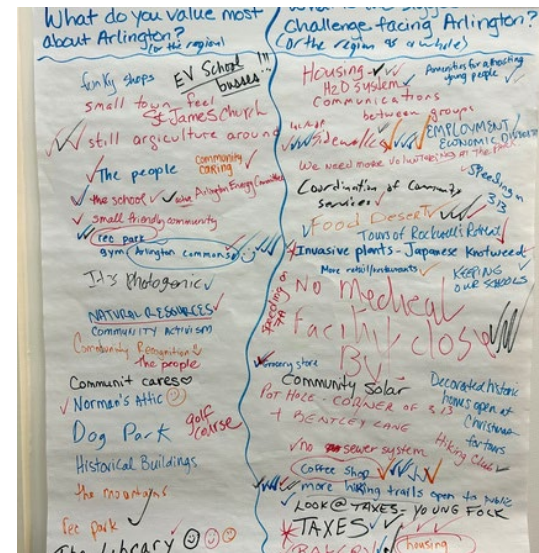 What do you value most
about Arlington?
(or the region)
funky shops
EV School
busses!!!
small town feel
St James Church
still argiculture around
The people
Community
caring
the school
Arlington Energy Committee
small friendly community
rec park
gym
Arlington commons
It's Photogenic
NATURAL RESOURCES
COMMUNITY ACTIVISM
Community Recognition
The people
Communit cares
Norman's Attic
golf
course
Dog Park
Historical Buildings
the mountains
rec park
The library
Challenge facing Arlington?
(or the region as a whole)
Housing
Amenities for attracting
young people
H2O system
Communications
between groups
Sidewalks
EMPLOYMENT/
ECONOMIC
We need more volunteering
Speeding on
313
Coordination of Community
services
Food Desert
Tours of Rockwell's Retreat
Invasive plants - Japanese Knotweed
More retail/restaurants
KEEPING
OUR SCHOOLS
Speeding on
7A
No Medical
Facility close
By
Grocery store
Community Solar
Decorated historic
homes open at
Christmas
for tours
POT HOLE - CORNER OF 313
+ BENTLEY LANE
Hiking Club
no sewer system
Coffee shop
more hiking trails open to public
LOOK @ TAXES - YOUNG FOLK
TAXES
housing